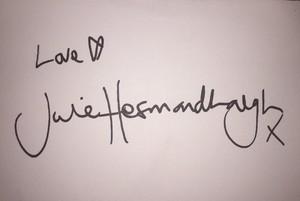 Love
Julie Hesmondhalgh
X